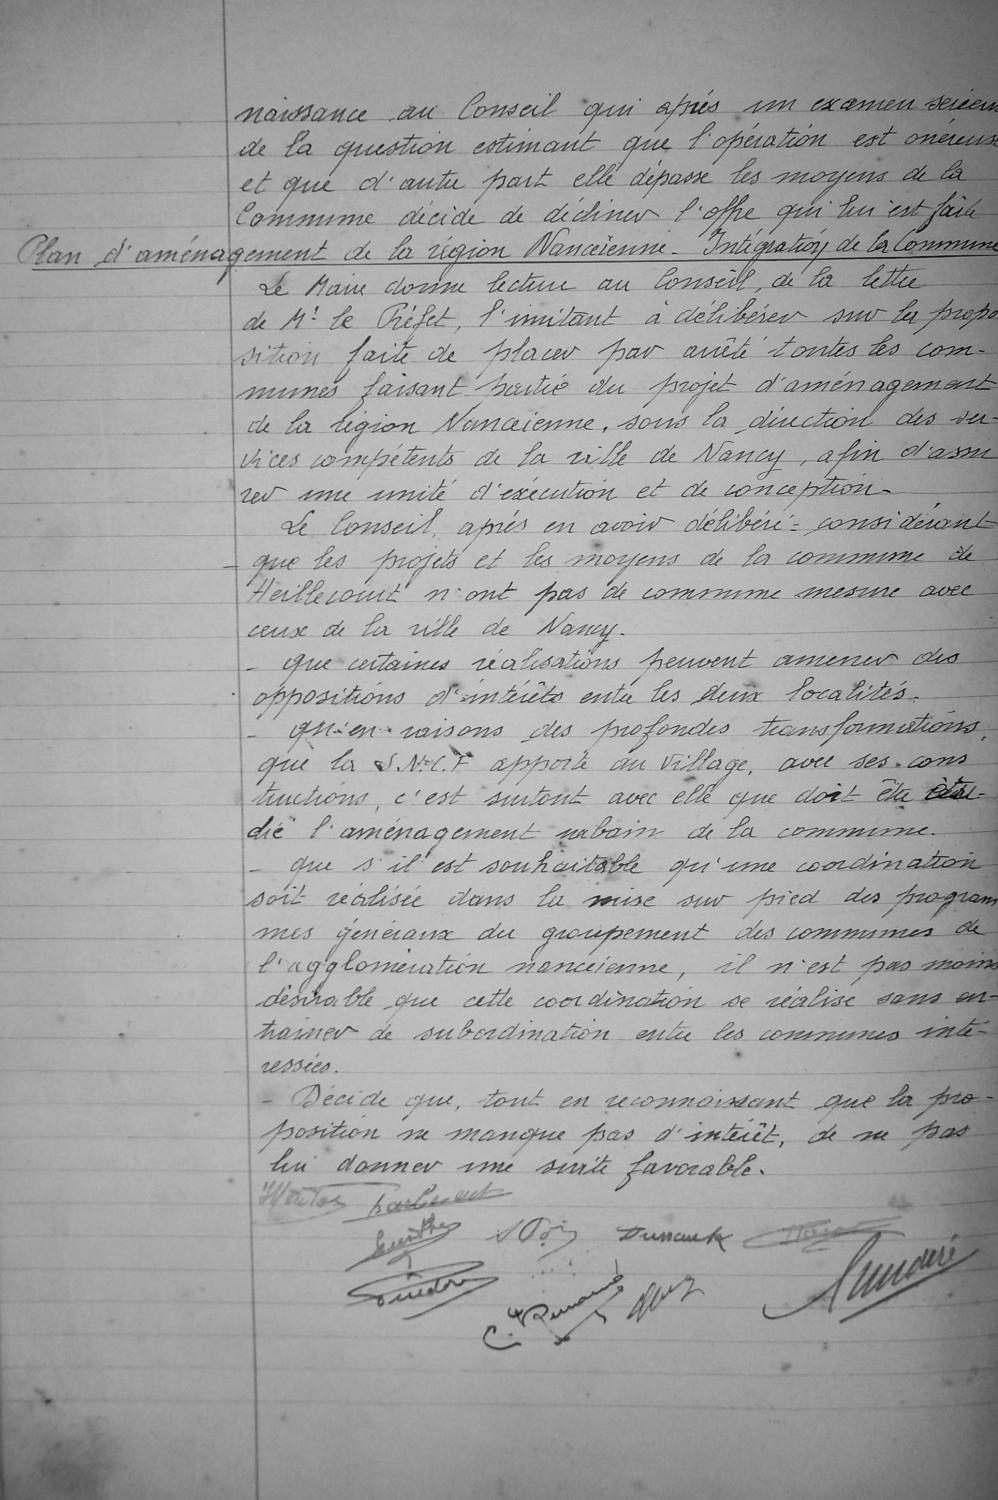 naissance au Conseil qui après un examen sérieux
de la question estimant que l'opération est onéreuse
et que d'autre part elle dépasse les moyens de la
Commune décide de décliner l'offre qui lui est faite
Plan d'aménagement de la région Nancéienne - Intégration de la Commune
Le Maire donne lecture au Conseil, de la lettre
de Mr le Préfet, l'invitant à délibérer sur la propo
sition faite de placer par arrêté toutes les com-
munes faisant partie du projet d'aménagement
de la région Nancéienne, sous la direction des ser-
vices compétents de la ville de Nancy, afin d'assu
rer une unité d'exécution et de conception-
Le Conseil, après en avoir délibéré = considérant
- que les projets et les moyens de la commune de
Heillecourt n'ont pas de commune mesure avec
ceux de la ville de Nancy.
- que certaines réalisations peuvent amener des
oppositions d'intérêts entre les deux localités.
- qu'en raisons des profondes transformations,
que la S.N.C.F apporte au Village, avec ses cons
tructions, c'est surtout avec elle que doit être étu-
dié l'aménagement urbain de la commune.
- que s'il est souhaitable qu'une coordination
soit réalisée dans la mise sur pied des program
mes généraux du groupement des communes de
l'agglomération nancéienne, il n'est pas moins
désirable que cette coordination se réalise sans en-
trainer de subordination entre les communes inté-
ressées.
- Décide que, tout en reconnaissant que la pro-
position ne manque pas d'intérêt, de ne pas
lui donner une suite favorable.